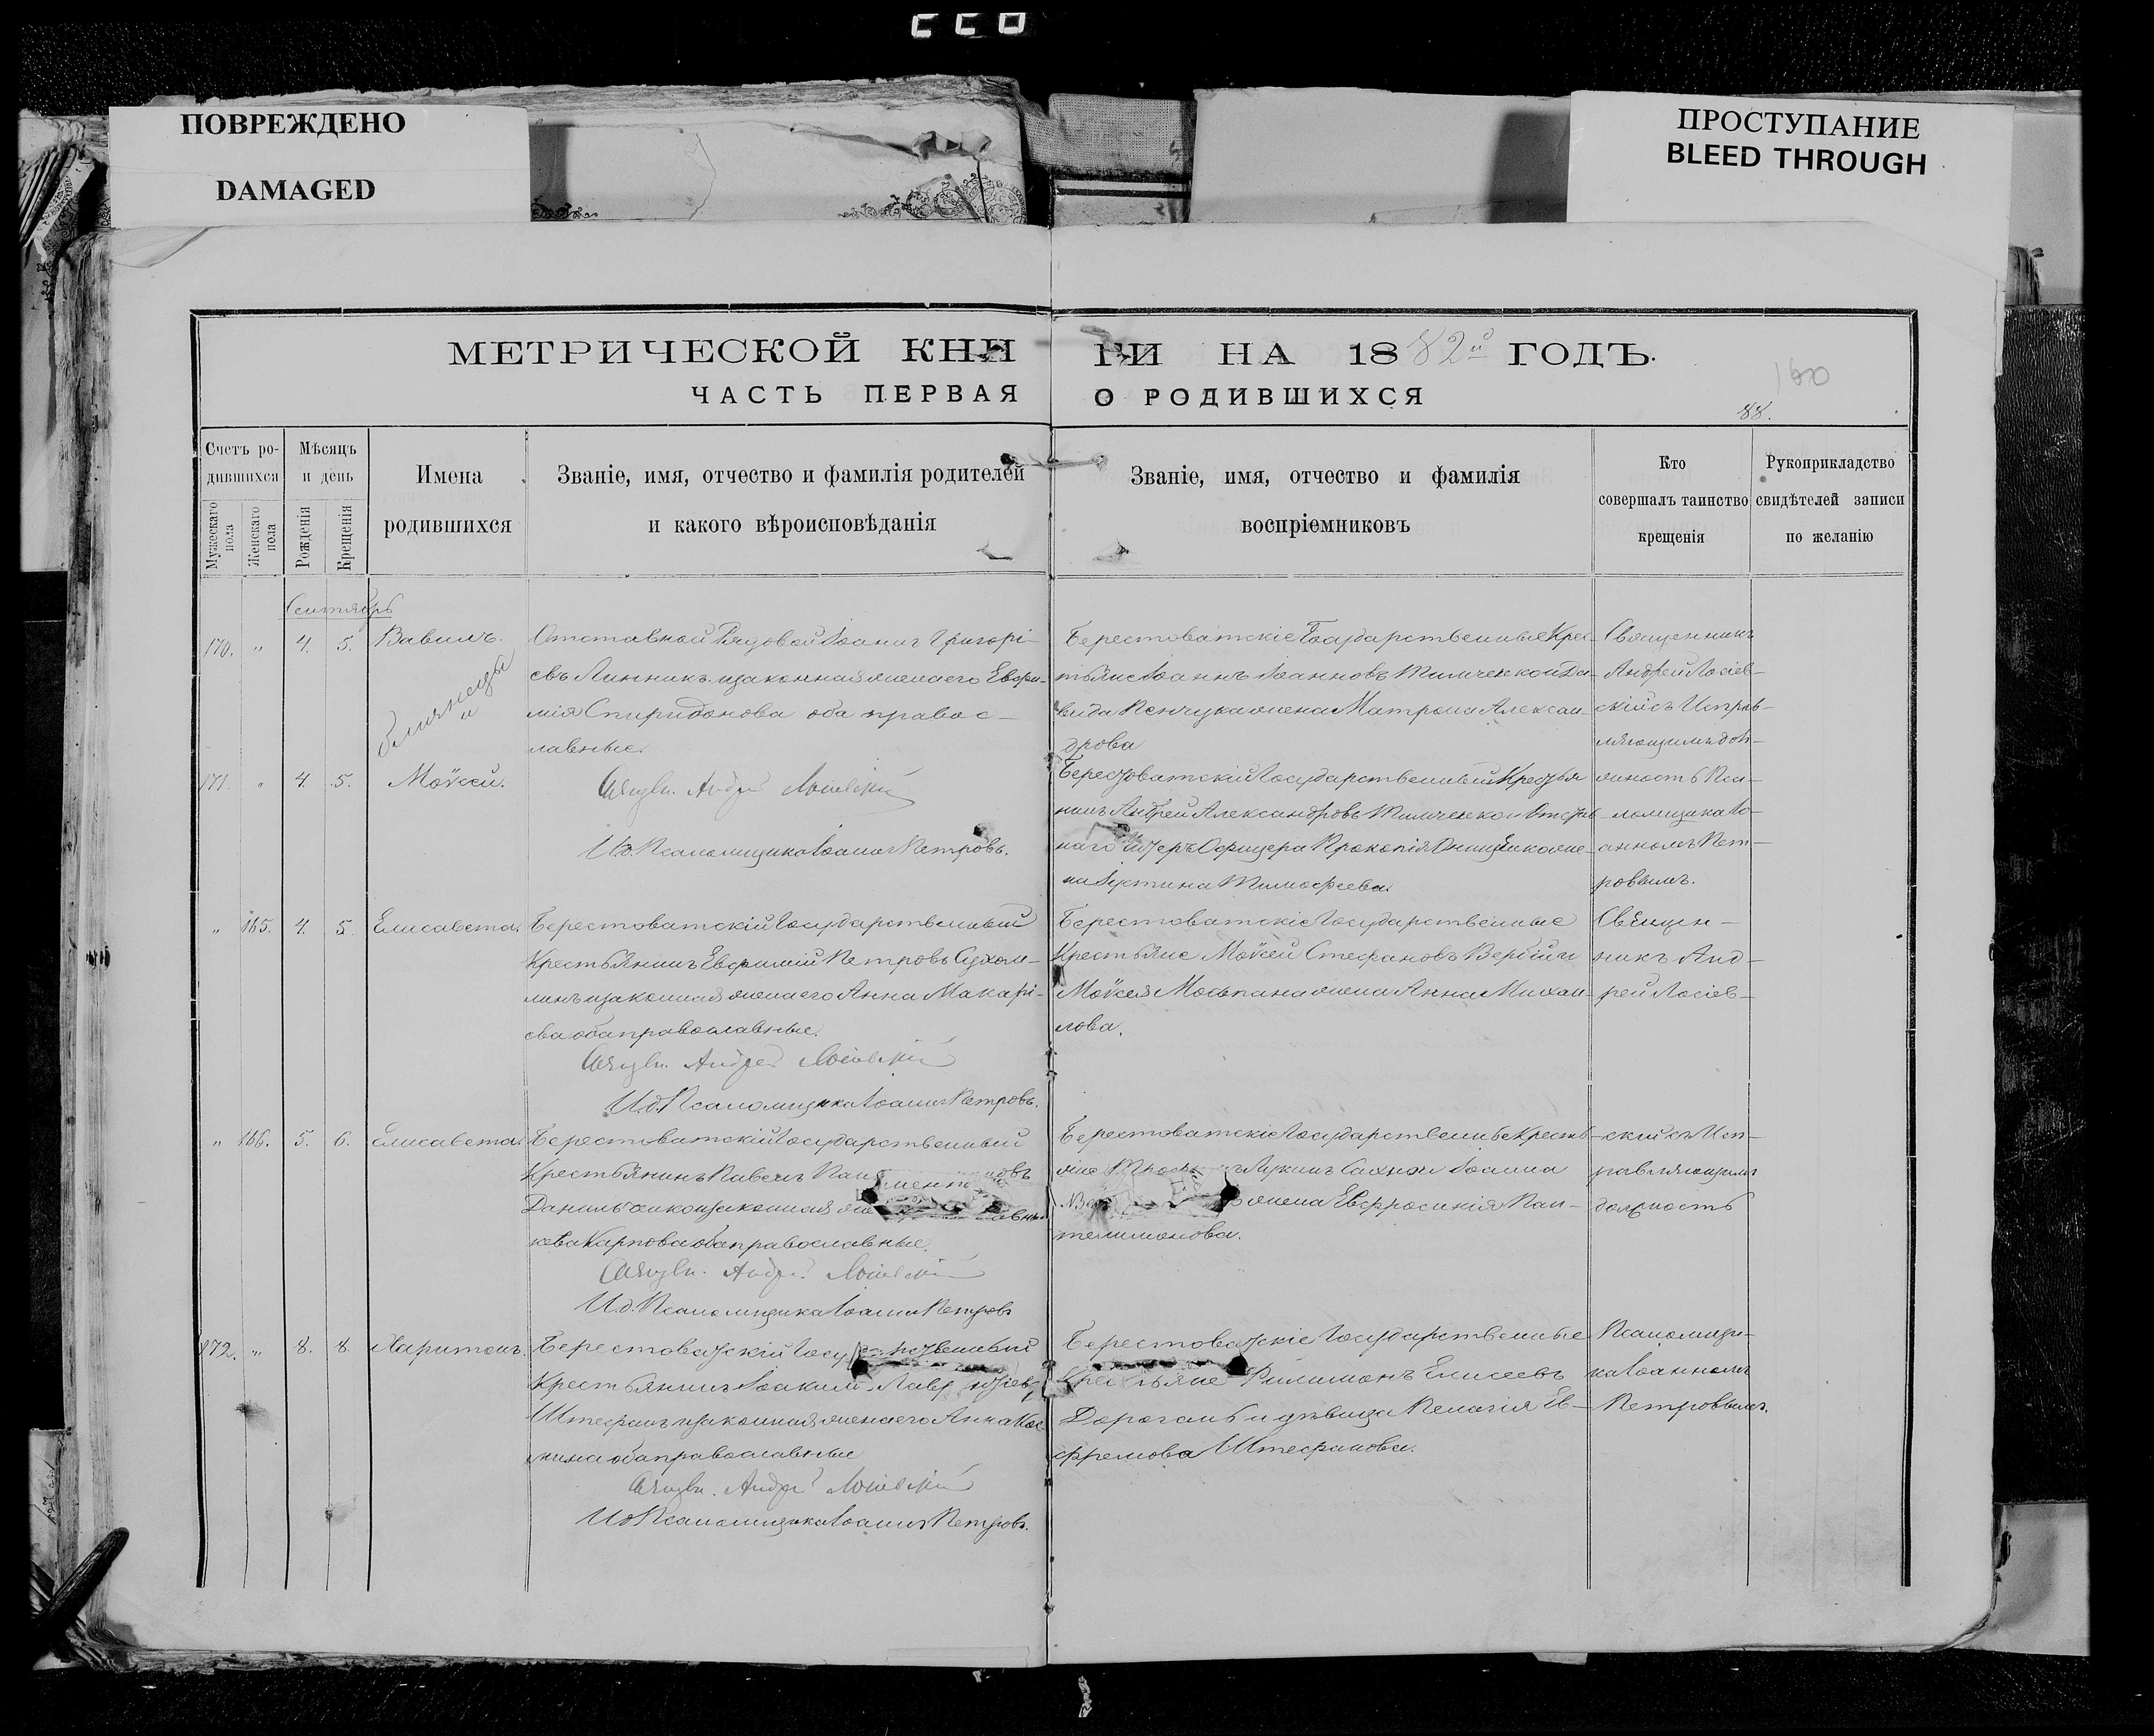 ПОВРЕЖДЕНО
DAMAGED
ПРОСТУПАНИЕ
BLEED THROUGH
МЕТРИЧЕСКОЙ КНИ ГИ НА 1882й ГОДЪ.
ЧАСТЬ ПЕРВАЯ О РОДИВШИХСЯ
160
88.
Счетъ ро-
дившихся
Мужескаго пола
Женскаго пола
Мѣсяцъ
и день
Рожденія
Крещенія
Имена
родившихся
Званіе, имя, отчество и фамилія родителей
и какого вѣроисповѣданія
Званіе, имя, отчество и фамилія
воспріемниковъ
Кто
совершалъ таинство
крещенія
Рукоприкладство
свидѣтелей записи
по желанію
Сентябрь
170. " 4. 5. Вавилъ.
близнецы
и
171. " 4. 5. Моѵсей.
Отставной Рядовой Іоаннъ Григорі-
евъ Линникъ и законная жена его Евфи-
мія Спиридонова оба правос-
лавные.
Священ. Андрей Лосіевскій
И.д. Псаломщика Іоаннъ Петровъ.
Берестоватскіе Государственные Крес-
тьяне Іоаннъ Іоанновъ Тимченко и Да-
вида жена Матрона Алексан-
дрова
Берестоватскій Государственный Крестья
нинъ Андрей Александровъ Тимченко и Отстав-
наго Унтеръ Офицера Прокопія жена
Іустина Тимофеева.
Священникъ
Андрей Лосіев-
скій съ Исправ-
ляющимъ дол-
жность Пса-
ломщика Іо-
анномъ Пет-
ровымъ.
" 165. 4. 5. Елисавета.
Берестоватскій Государственный
Крестьянинъ Евфимій Петровъ Сухом-
линъ и законная жена его Анна Макарі-
ева оба православные.
Священ. Андрей Лосіевскій
И.д. Псаломщика Іоаннъ Петровъ.
Берестоватскіе Государственные
Крестьяне Моѵсей Стефановъ Вербій и
Моѵсея Мосьпана жена Анна Михаи-
лова.
Священ-
никъ Анд-
рей Лосіев-
" 166. 5. 6. Елисавета.
Берестоватскій Государственный
Крестьянинъ Павелъ
Данильченко и законная
Карпова оба православные.
Священ. Андрей Лосіевскій
И.д. Псаломщика Іоаннъ Петровъ
Берестоватскіе Государственные Кресть-
яне Лукинъ Сахно и Іоанна
жена Евфросинія Пан-
телимонова.
скій съ Исп-
равляющимъ
должность
172. " 8. 8. Харитонъ.
Берестоватскій Государственный
Крестьянинъ Іоакимъ
Штефанъ и законная жена его Анна Кос
мина оба православные
Священ. Андрей Лосіевскій
И.д. Псаломщика Іоаннъ Петровъ.
Берестоватскіе Государственные
Крестьяне Филимонъ Елисеевъ
Дорогань и дѣвица Пелагія Ев-
фремова Штефанова.
Псаломщи-
ка Іоанномъ
Петровымъ.